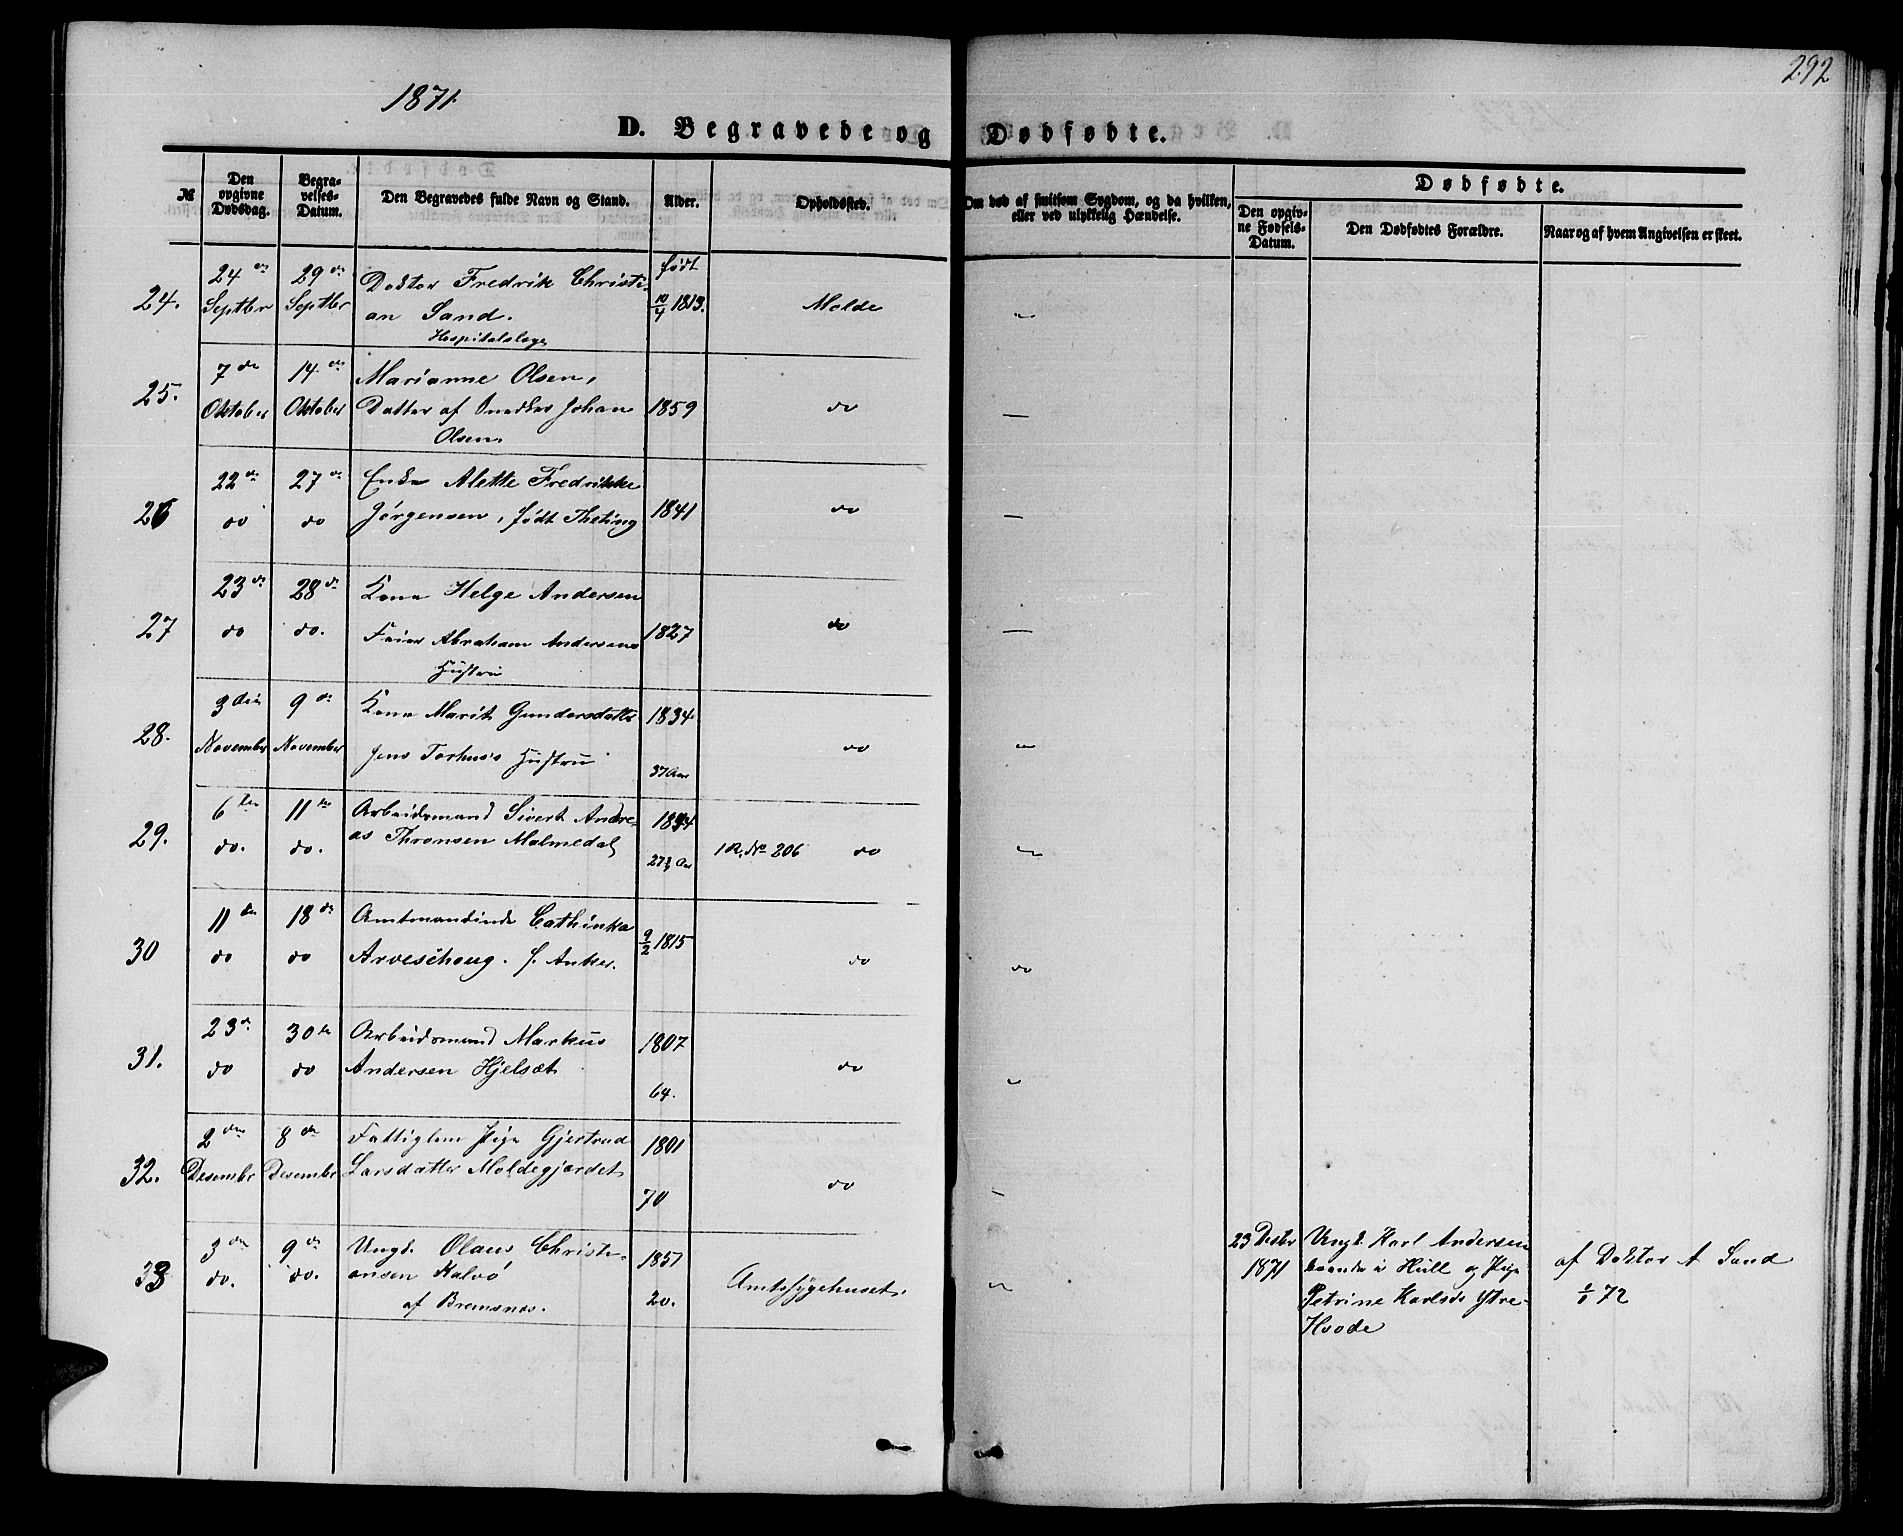 292
1871.
D. Begravede og Dødfødte.
№
Den opgivne Dødsdag.
Begravelses-Datum.
Den Begravedes fulde Navn og Stand.
Alder.
Opholdssted.
Om død af smitsom Sygdom, og da hvilken, eller ved ulykkelig Hændelse.
Dødfødte.
Den opgivne Fødsels-Datum.
Den Dødfødtes Forældre.
Naar og af hvem Angivelsen er skeet.
24.
24de Septbr
29de Septbr
Doktor Fredrik Christi-
an Sand.
Hospitalslæge
født
10/4 1813.
Molde
25.
7de Oktober
14de Oktober
Marianne Olsen,
Datter af Snedker Johan
Olsen.
1859
do
—
26
22de do
27de do
Enke Alette Fredrikke
Jørgensen, født Theting
1841
do
—
27
23de do
28de do.
Kone Helge Andersen
Feier Abraham Andersens
Hustru
1827
do
—
28.
3die November
9de November
Kone Marit Gundersdatter
Jens Torhus's Hustru
1834
37 Aar
do
—
29.
6te do.
11te do.
Arbeidsmand Sivert Andre-
as Thronsen Malmedal
1844
27½ Aar
1 R, No 206 do
30
11te do
18de do
Amtmandinde Cathinka
Arveschoug. f. Anker.
9/2 1815
do
do
31.
23de do
30te do
Arbeidsmand Markus
Andersen Hjelset
1807
64.
do
32.
2den Desembr
8de Desembr
Fattiglem Pige Gjertrud
Larsdatter Moldegjærdet
1801
70
do
33
3die do.
9de do.
Ungk. Olaus Christi-
ansen Kalvø
af Bremsnes.
1851
20.
Amtssygehuset.
23 Desbr
1871
Ungk. Karl Andersen
boende i Hull og Pige
Petrine Karlsdr Ytre-
Hvode
af Doktor A Sand
2/1 72